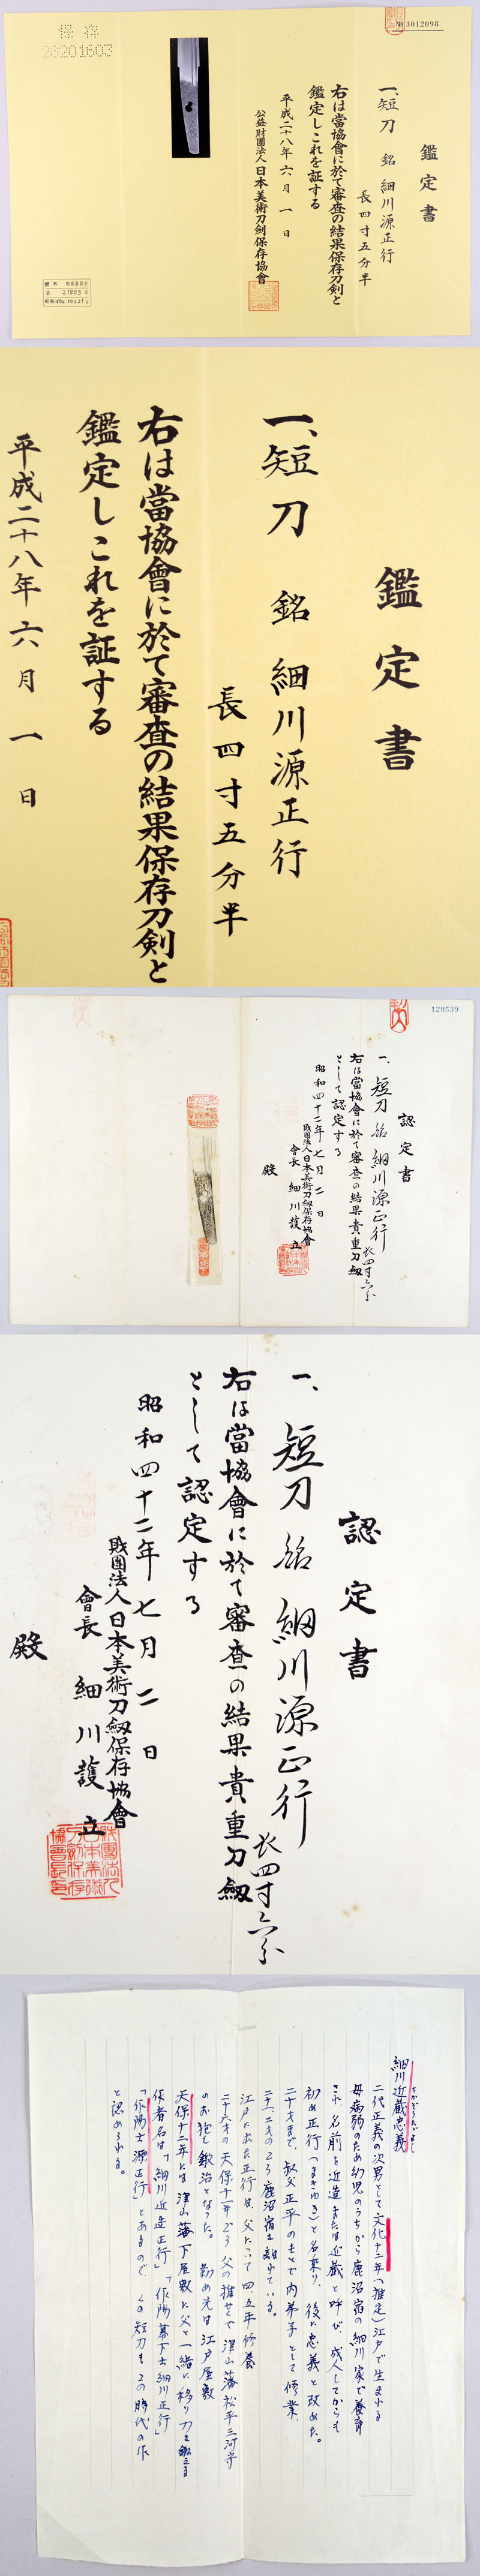 № 3012098
鑑定書
一、短刀 銘 細川源正行
長四寸五分半
右は當協會に於て審査の結果保存刀剣と
鑑定しこれを証する
平成二十八年六月一日
公益財團法人日本美術刀剣保存協會
保存
28201603
鑑定書
一、短刀 銘 細川源正行
長四寸五分半
右は當協會に於て審査の結果保存刀剣と
鑑定しこれを証する
平成二十八年六月一日
129539
認定書
一、短刀 銘 細川源正行
長四寸六分
右は當協會に於て審査の結果貴重刀劔
として認定する
昭和四十二年七月二日
財團法人日本美術刀劔保存協會
會長 細川護立
殿
認定書
一、短刀 銘 細川源正行
長四寸六分
右は當協會に於て審査の結果貴重刀劔
として認定する
昭和四十二年七月二日
財團法人日本美術刀劔保存協會
會長 細川護立
殿
細川近蔵忠義
二代正義の次男として文化十二年(推定)江戸で生まれる
母病弱のため幼児のうちから鹿沼宿の細川家で養育
され、名前を近造または近蔵と呼び、成人してからも
初め正行(まさゆき)と名乗り、後に忠義と改めた。
二十才まで、叔父正平のもとで内弟子として修業、
二十一、二才のころ鹿沼宿を離れている。
江戸に出た正行は、父について四、五年修養
二十六才の天保十一年ごろ父の推せんで津山藩松平三河守
のお抱え鍛冶となった。 勤め先は江戸屋敷
天保十二年には津山藩下屋敷に父と一緒に移り刀を鍛える
作者名は「細川近造正行」「作陽幕下士細川正行」
「作陽士源正行」とあるので、この短刀もこの時代の作
と認められる。